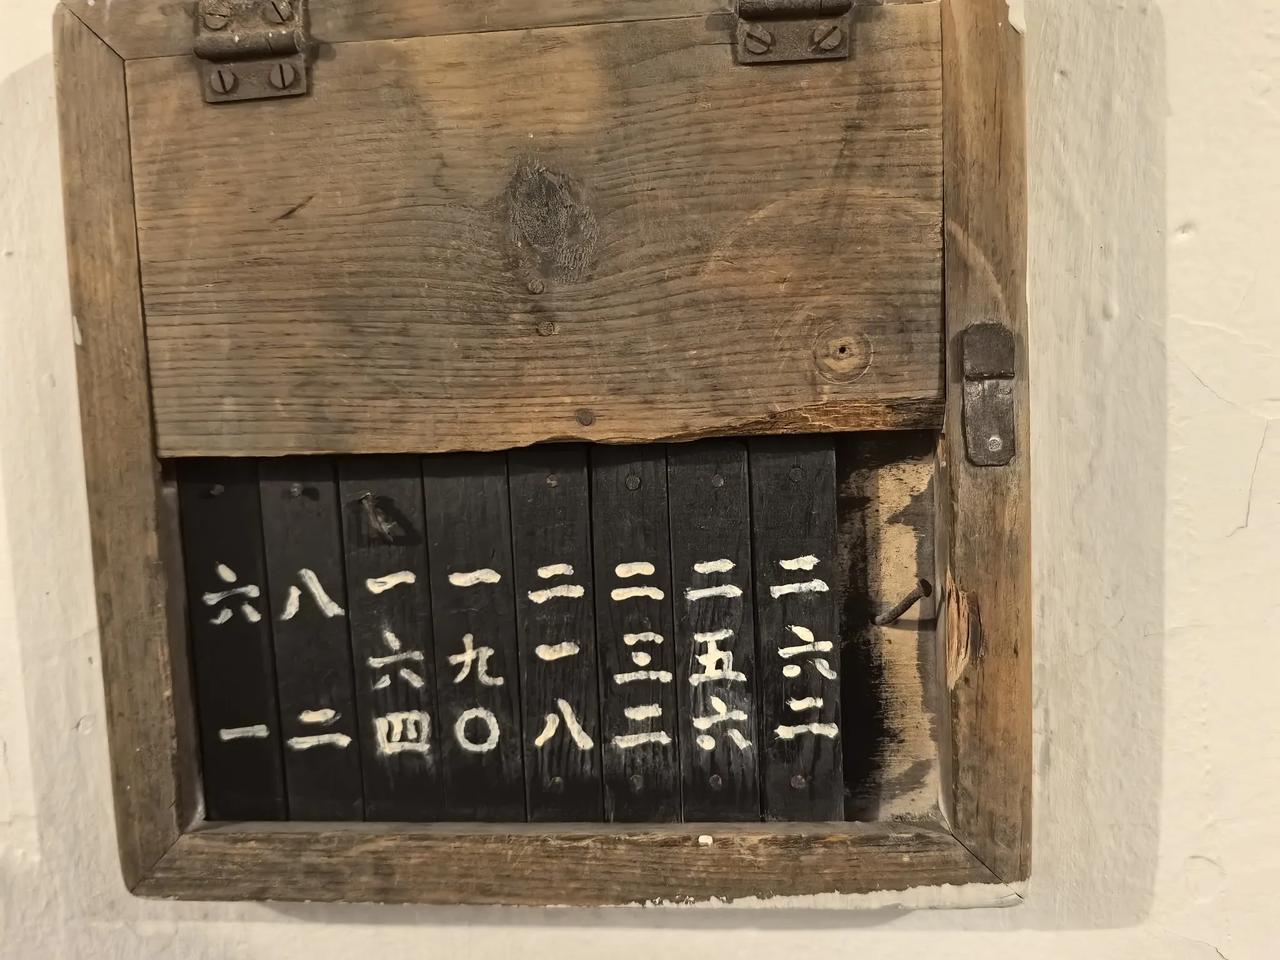 六一
八二
一六四
一九〇
二一八
二三二
二五六
二六二